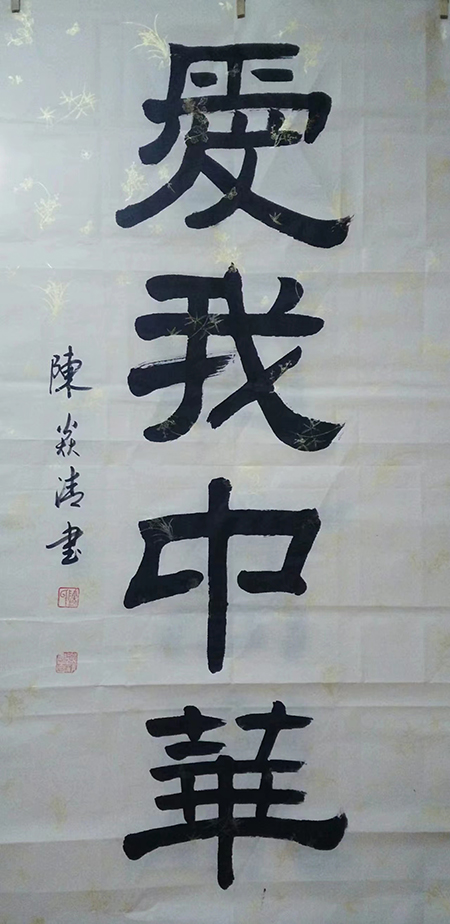 愛我中華
陳焱清書